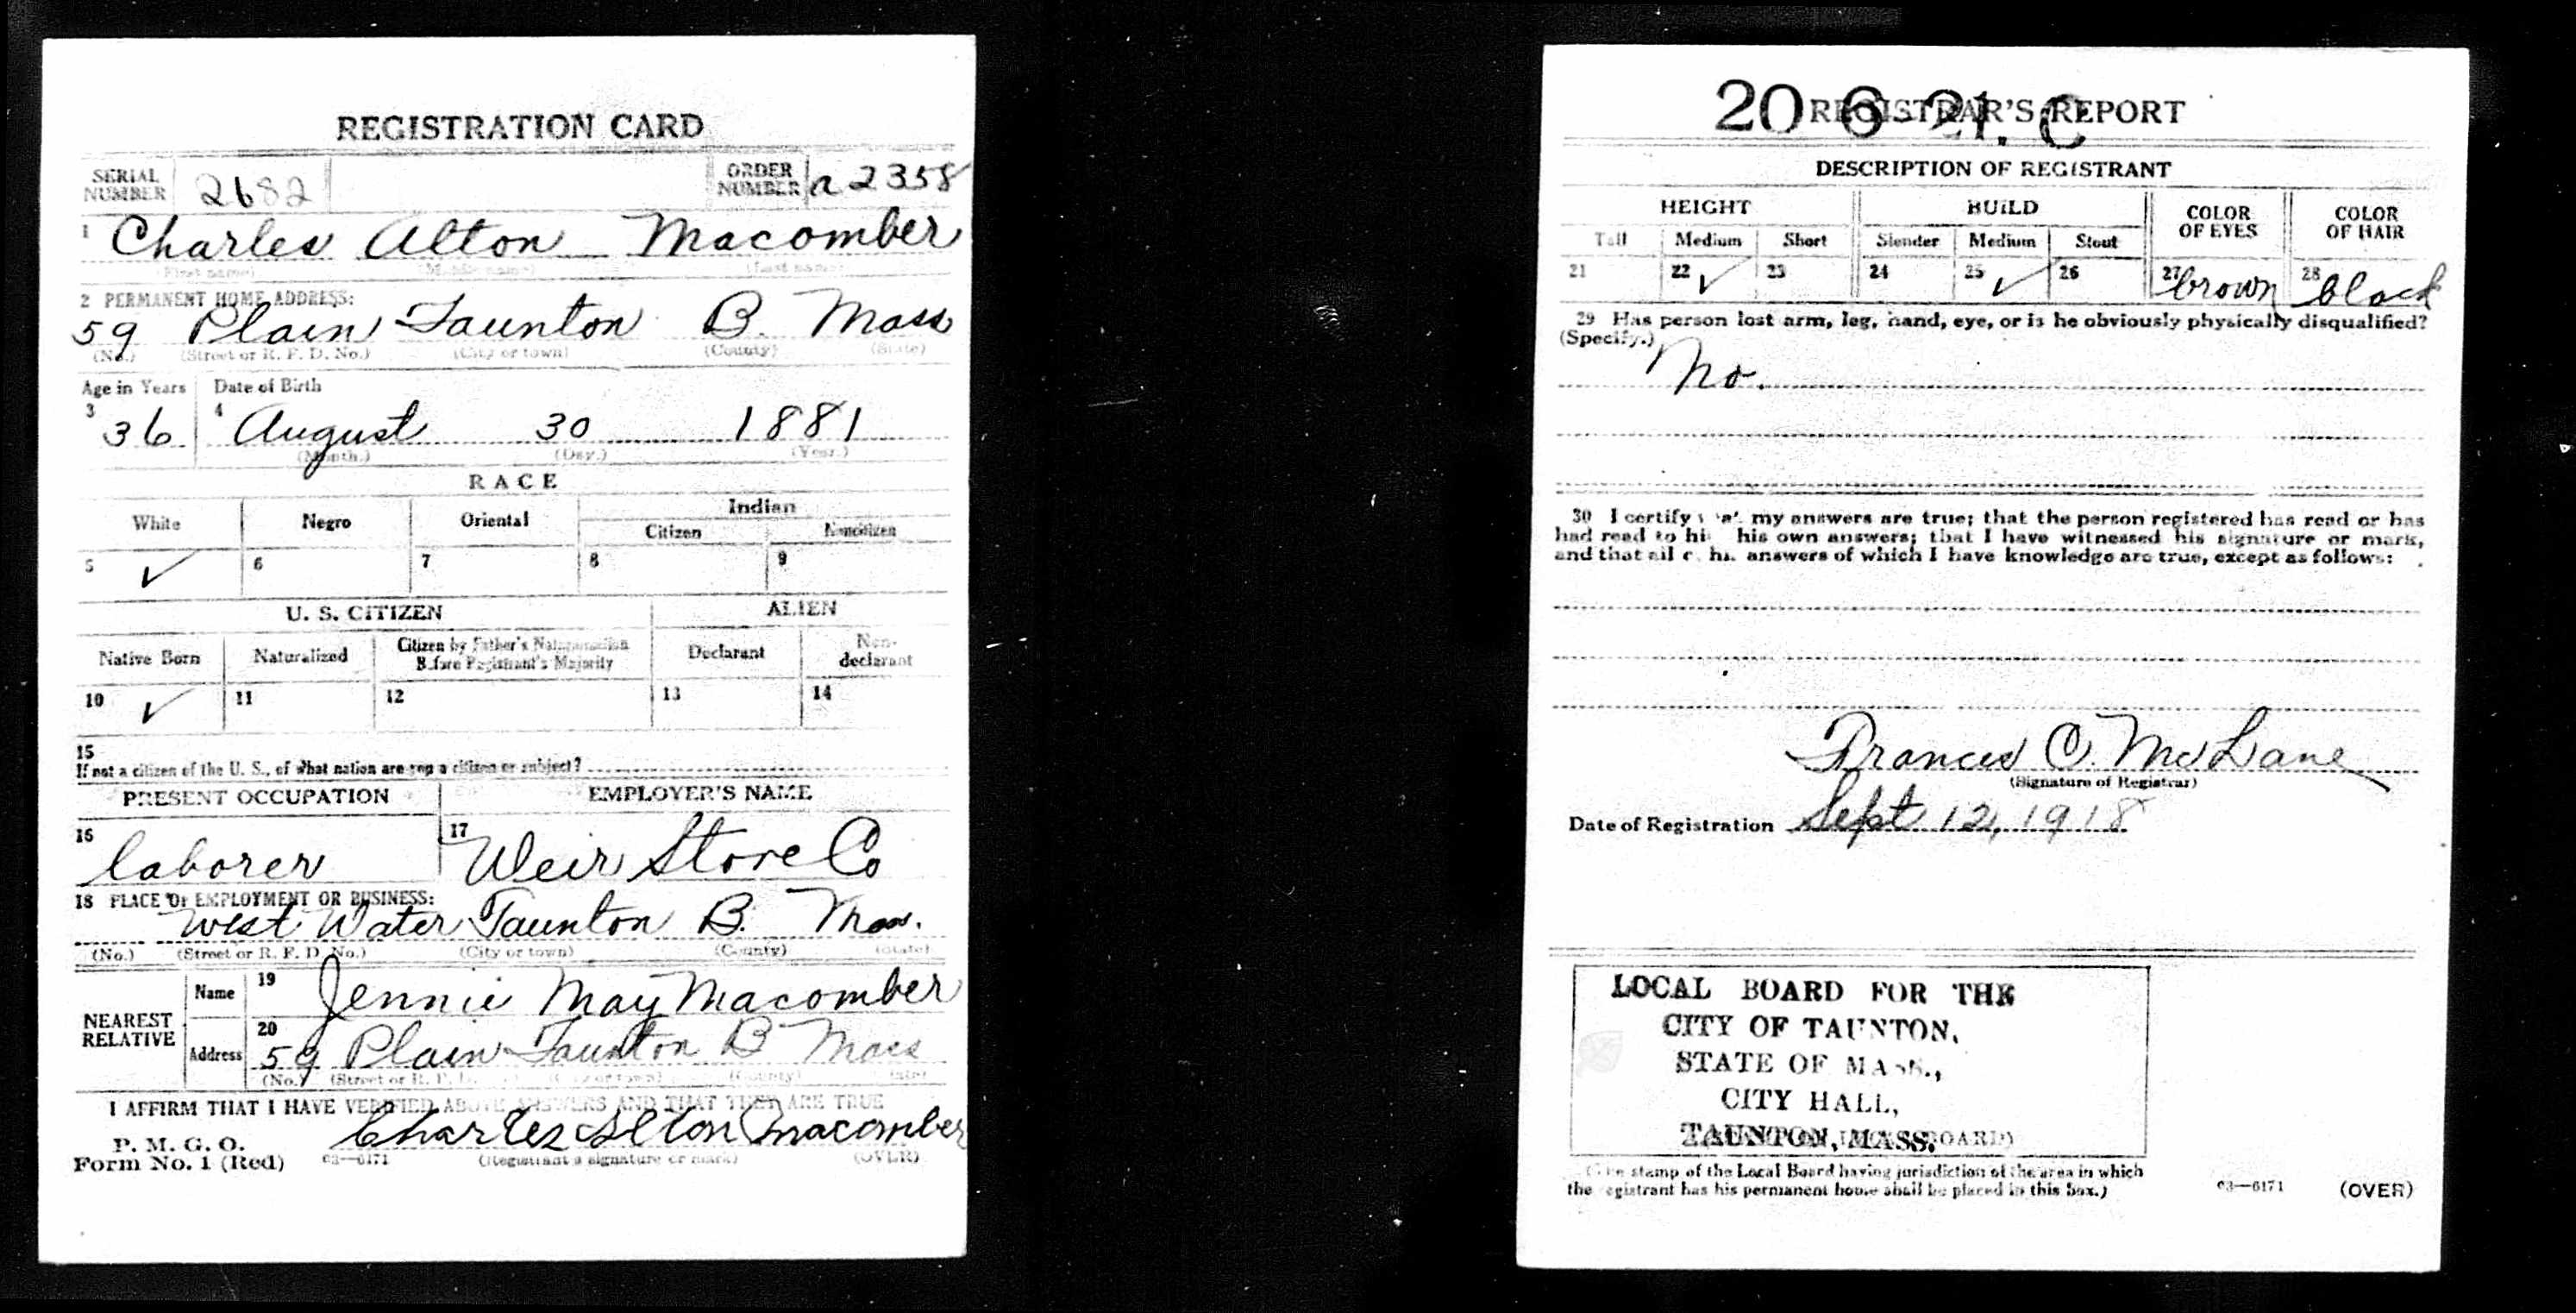 REGISTRATION CARD
SERIAL NUMBER 2682 ORDER NUMBER a 2358
1 Charles Alton Macomber
(First name) (Middle name) (Last name)
2 PERMANENT HOME ADDRESS:
59 Plain Taunton B. Mass
(No.) (Street or R. F. D. No.) (City or town) (County) (State)
Age in Years Date of Birth
3 36 4 August 30 1881
(Month.) (Day.) (Year.)
RACE
White Negro Oriental Indian
Citizen Noncitizen
5 ✓ 6 7 8 9
U. S. CITIZEN ALIEN
Native Born Naturalized Citizen by Father's Naturalization Before Registrant's Majority Declarant Non-declarant
10 ✓ 11 12 13 14
15
If not a citizen of the U. S., of what nation are you a citizen or subject?
PRESENT OCCUPATION EMPLOYER'S NAME
16 laborer 17 Weir Stove Co
18 PLACE OF EMPLOYMENT OR BUSINESS:
West Water Taunton B. Mass.
(No.) (Street or R. F. D. No.) (City or town) (County) (State)
NEAREST RELATIVE
Name 19 Jennie May Macomber
Address 20 59 Plain Taunton B Mass
(No.) (Street or R. F. D. No.) (City or town) (County) (State)
I AFFIRM THAT I HAVE VERIFIED ABOVE ANSWERS AND THAT THEY ARE TRUE
P. M. G. O.
Form No. 1 (Red) 03—6171 Charles Alton Macomber
(Registrant's signature or mark) (OVER)
20 6-21. C
REGISTRAR'S REPORT
DESCRIPTION OF REGISTRANT
HEIGHT BUILD COLOR OF EYES COLOR OF HAIR
Tall Medium Short Slender Medium Stout
21 22 ✓ 23 24 25 ✓ 26 27 brown 28 black
29 Has person lost arm, leg, hand, eye, or is he obviously physically disqualified?
(Specify.)
No.
30 I certify my answers are true; that the person registered has read or has
had read to his own answers; that I have witnessed his signature or mark,
and that all answers of which I have knowledge are true, except as follows:
Francis O. McLane
(Signature of Registrar)
Date of Registration Sept 12, 1918
LOCAL BOARD FOR THE
CITY OF TAUNTON,
STATE OF MASS.,
CITY HALL,
TAUNTON, MASS.
(The stamp of the Local Board having jurisdiction of the area in which
the registrant has his permanent home shall be placed in this box.)
03—6171 (OVER)